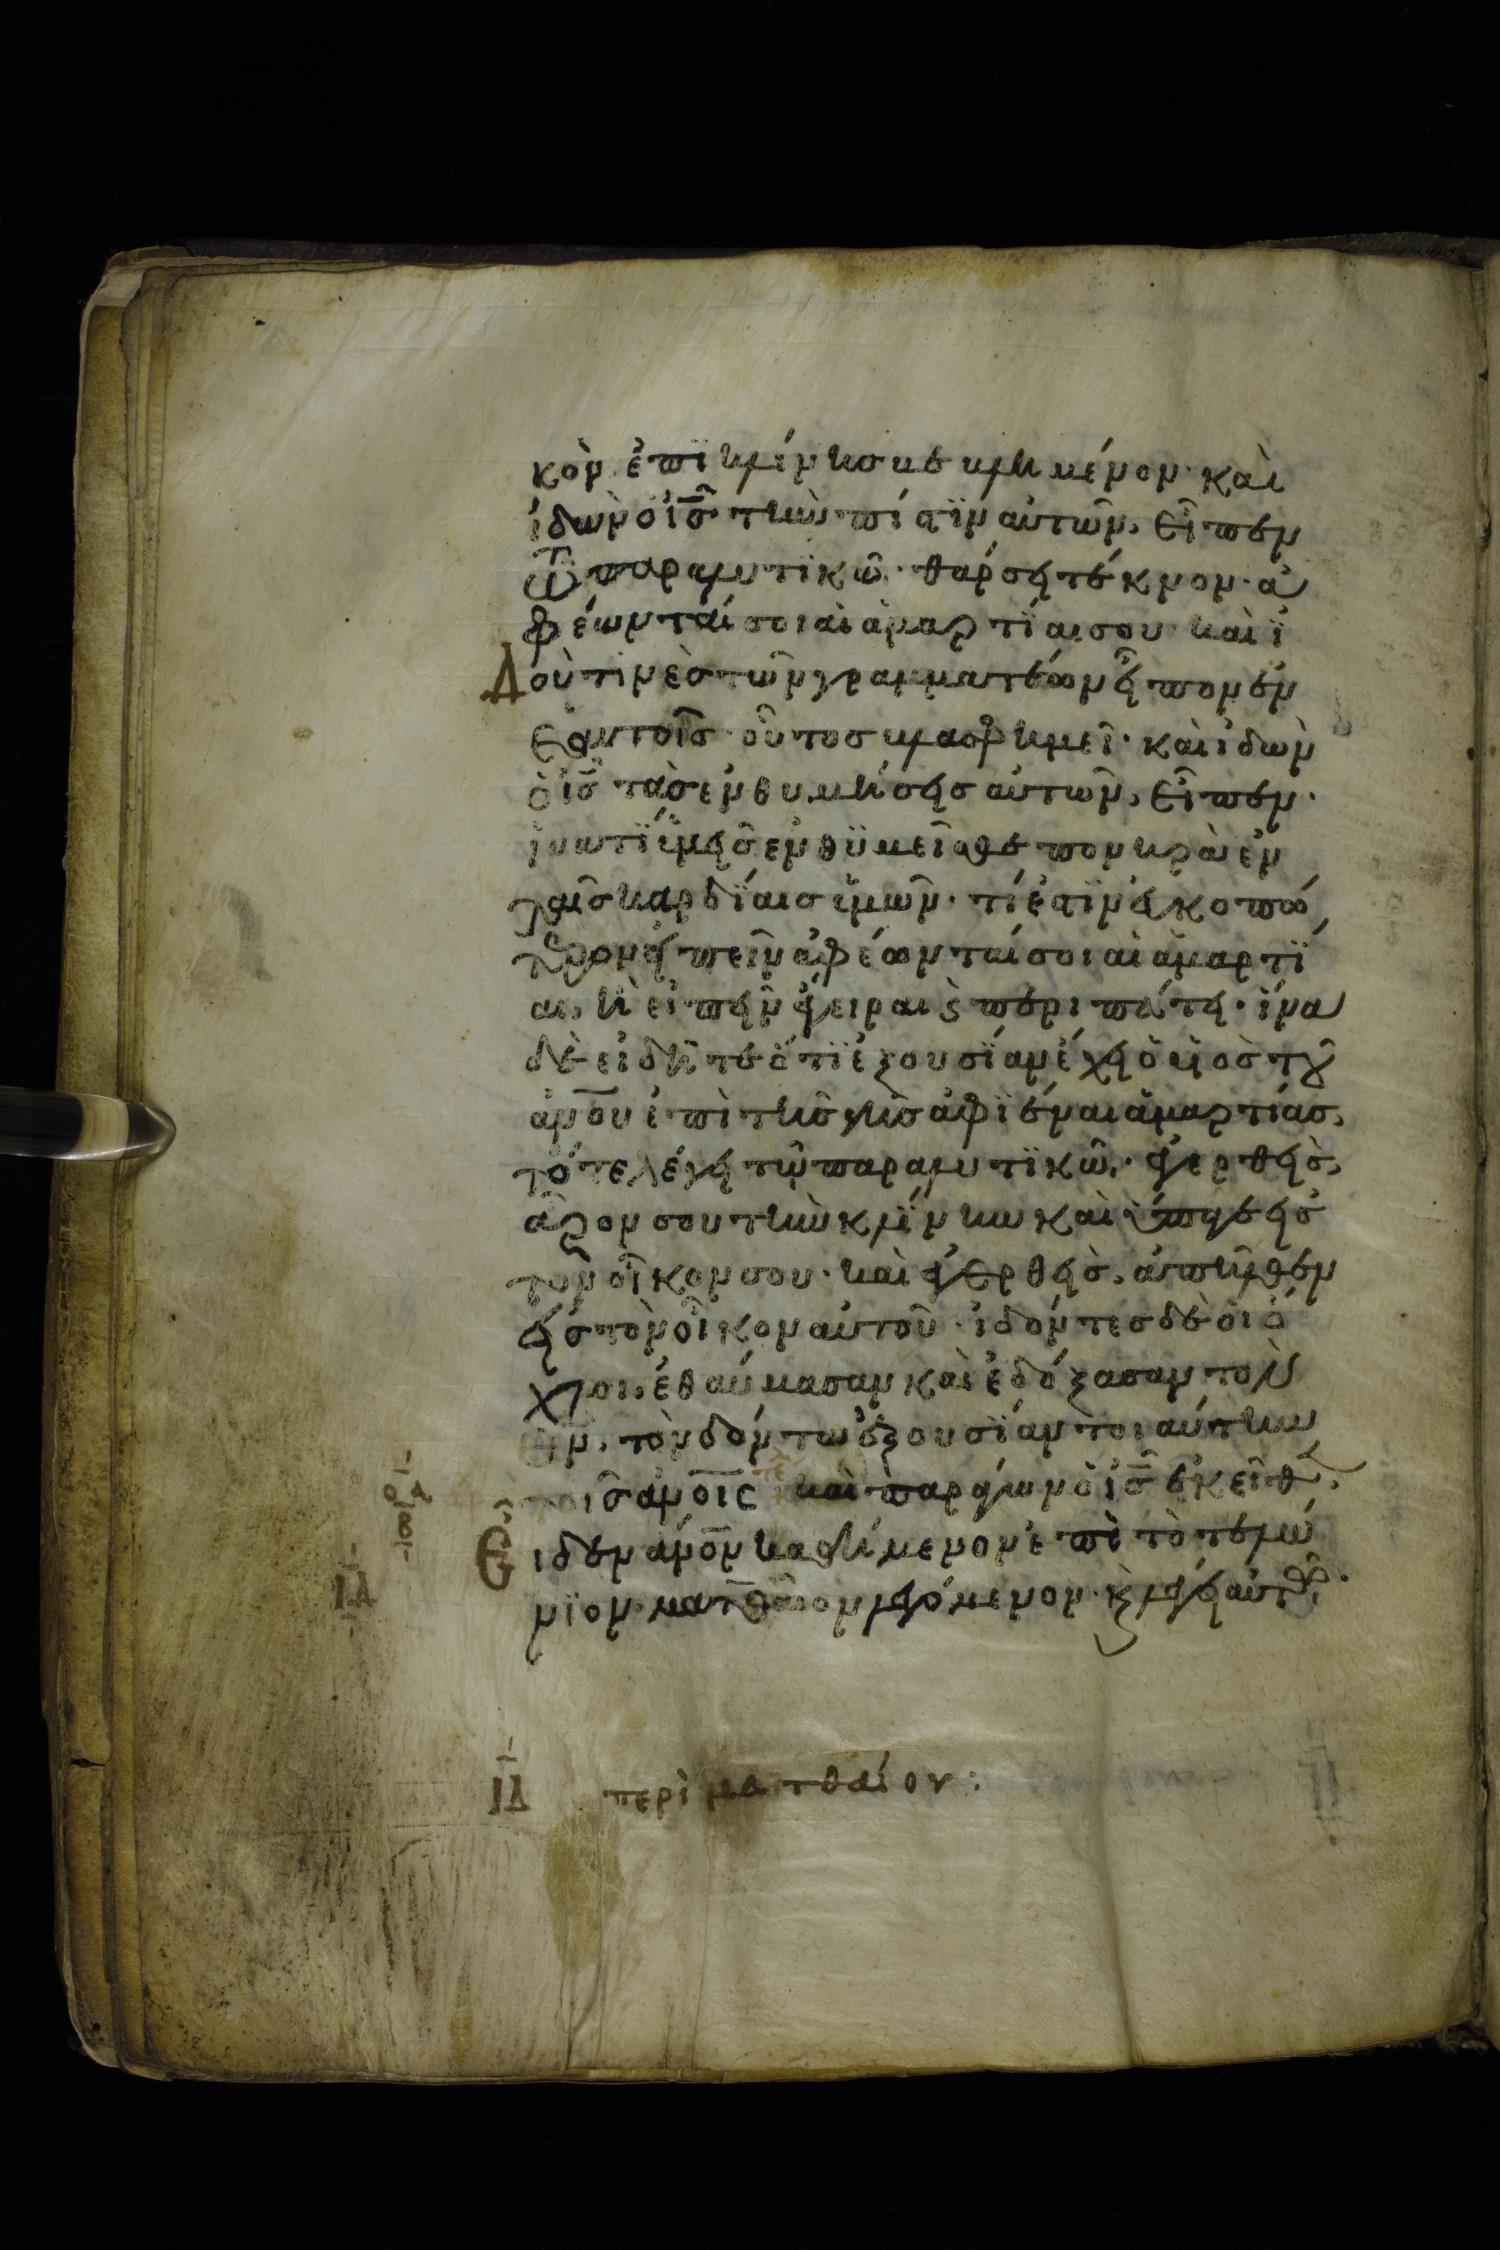 κὸν ἐπῒ κλίνησ βεβλημένον· καὶ
ἰδὼν ὁ ἰς̅ τὴν πίστϊν αὐτῶν, εἶπεν
τῶ παραλυτϊκῶ· θάρση τέκνον· ἀ
φέωνταί σοι αἱ ἁμαρτΐαι σου· καὶ ϊ
Δοὺ τινὲσ τῶν γραμματέων εἶπον ἐν
ἑαυτοῖσ· οὗτοσ βλασφημεῖ· καὶ ἰδὼν
ὁ ἰς̅ τὰσ ἐνθυμήσησ αὐτῶν, εἶπεν·
ἱνατΐ ὑμῆσ ἐνθϋμεῖσθε πονηρὰ ἐν
ταῖσ καρδΐαισ ὑμῶν· τί ἐστϊν εὐκοπώ
τερον εἰπεῖν ἀφέωνταί σοι αἱ ἁμαρτΐ
αι, ἢ εἰπῆν ἔγειραι ϗ περιπάτη· ἵνα
δὲ εἰδῆτε ὅτϊ ἐξουσΐαν ἔχη ὁ ὑϊὸσ τοῦ
ἀνο̅υ ἐπὶ τῆσ γῆσ ἀφϊέναι ἁμαρτίασ,
τότε λέγη τῶ παραλυτϊκῶ· ἐγερθεὶσ,
ἆρον σου τὴν κλΐνην καὶ ὕπαγε εἰσ
τὸν οἶκον σου· καὶ ἐγερθεὶσ, ἀπῆλθεν
εἰσ τὸν οἶκον αὐτοῦ· ἰδόντεσ δὲ οἱ ὄ
χλοι, ἐθαύμασαν καὶ ἐδόξασαν τὸν
θν̅, τὸν δόντα ἐξουσΐαν τοιαύτην
τοῖσ ἀνο̅ις καὶ παράγων ὁ ἰς̅ ἐκεῖθεν,
Εἶ
ιδεν ἀνο̅ν καθήμενον ἐπὶ τὸ τελώ
νϊον ματθαῖον λεγόμενον· ϗ λέγει αὐτῶ·
ο̅α̅
β̅
ΙΔ
ΙΔ περὶ ματθαίου: